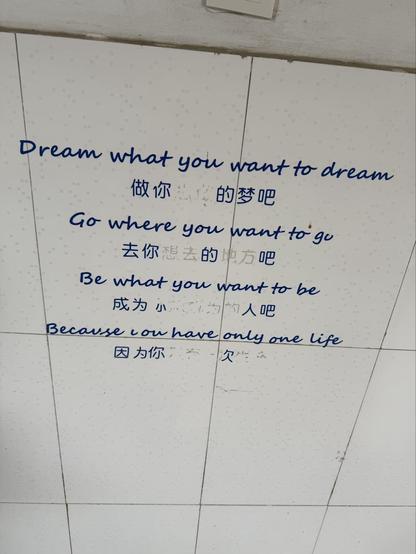 Dream what you want to dream
做你的梦吧
Go where you want to go
去你想去的地方吧
Be what you want to be
成为人吧
Because you have only one life
因为你